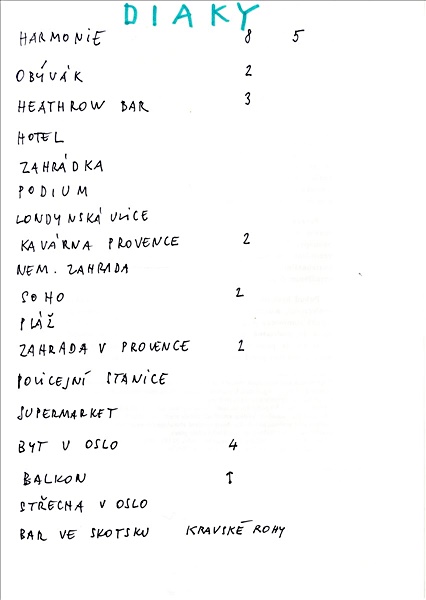 DIAKY
HARMONIE 8 5
OBÝVÁK 2
HEATHROW BAR 3
HOTEL
ZAHRÁDKA
PODIUM
LONDÝNSKÁ ULICE
KAVÁRNA PROVENCE 2
NEM. ZAHRADA
SOHO 2
PLÁŽ
ZAHRADA V PROVENCE 2
POLICEJNÍ STANICE
SUPERMARKET
BYT V OSLO 4
BALKON ↑
STŘECHA V OSLO
BAR VE SKOTSKU KRAVSKÉ ROHY